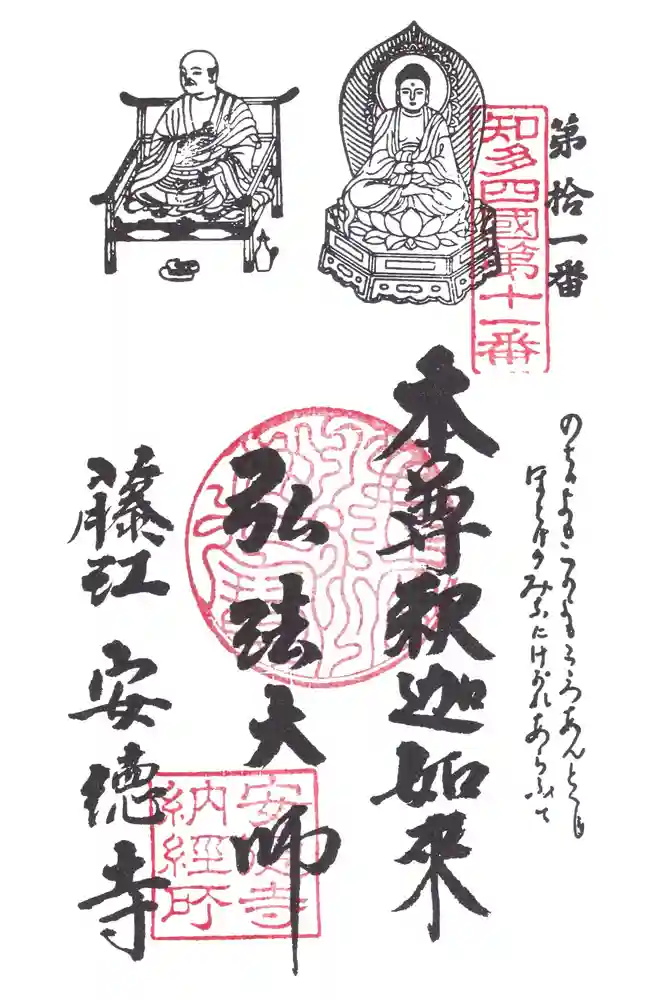 第拾一番
知多四國第十一番
のちのよもこのよもこゝろあんとくし
ほとけのみ にけがれあらふて
本尊釈迦如來
弘法大師
藤江 安徳寺
安徳寺
納經所